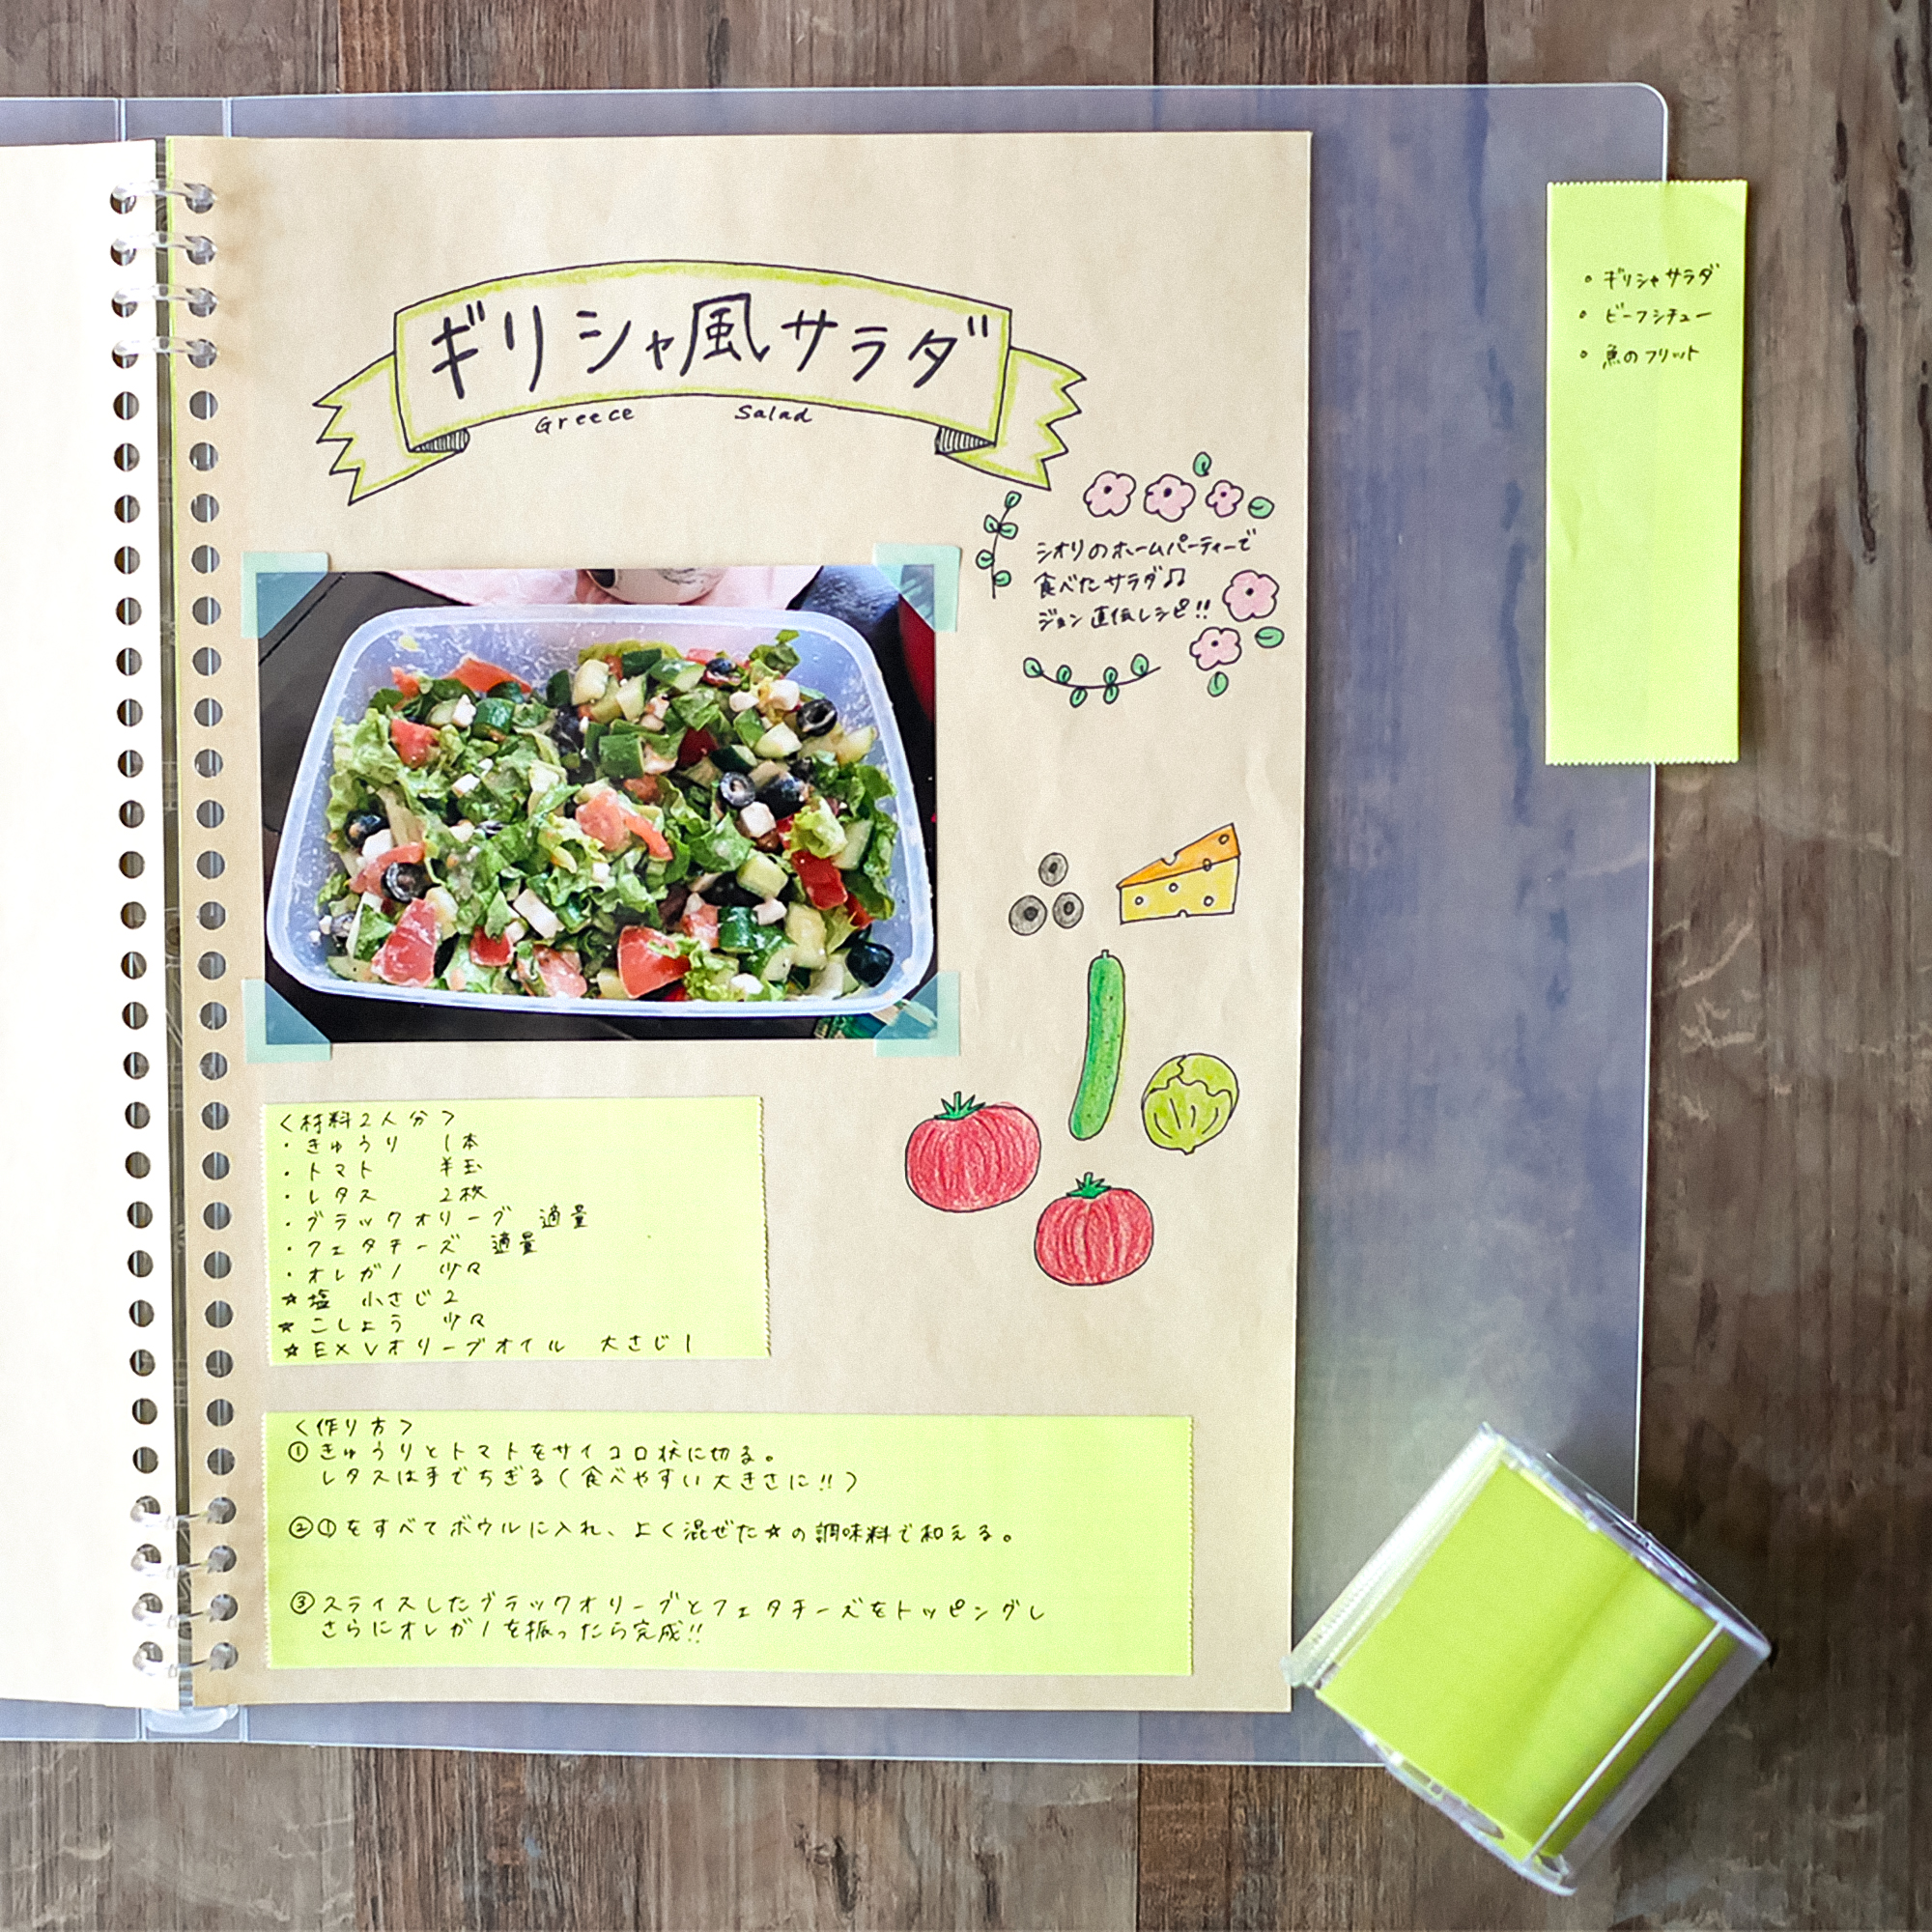 ギリシャ風サラダ
Greece Salad
シオリのホームパーティーで
食べたサラダ♫
ジョン直伝レシピ!!
・ギリシャサラダ
・ビーフシチュー
・魚のフリット
<材料2人分>
・きゅうり 1本
・トマト 半玉
・レタス 2枚
・ブラックオリーブ 適量
・フェタチーズ 適量
・オレガノ 少々
☆塩 小さじ2
☆こしょう 少々
☆EXVオリーブオイル 大さじ1
<作り方>
①きゅうりとトマトをサイコロ状に切る。
レタスは手でちぎる(食べやすい大きさに!!)
②①をすべてボウルに入れ、よく混ぜた☆の調味料で和える。
③スライスしたブラックオリーブとフェタチーズをトッピングし
さらにオレガノを振ったら完成!!